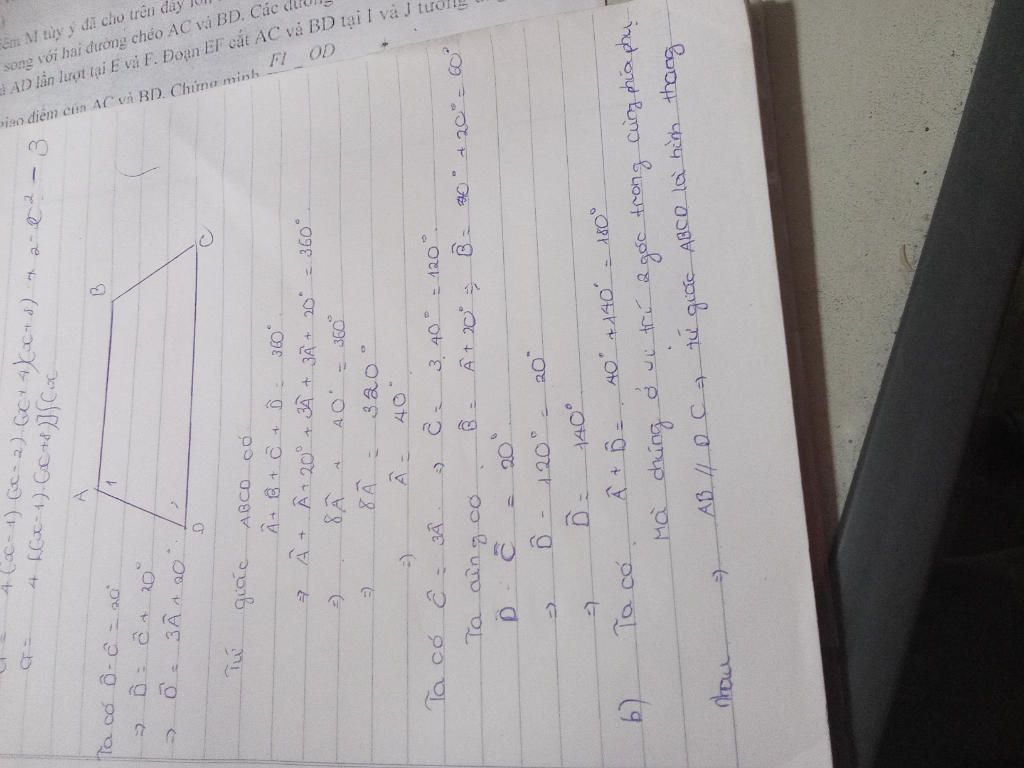 iểm M tùy ý đã cho trên đáy lớn
song với hai đường chéo AC và BD. Các đường
AD lần lượt tại E và F. Đoạn EF cắt AC và BD tại I và J tương
giao điểm của AC và BD. Chứng minh FI OD
4(x-1)(x-2)(x+4)(x+8)
Ta có D̂ - Ĉ = 20°
=> D̂ = Ĉ + 20°
=> D̂ = 3Â + 20°
A
B
1
D
C
Tứ giác ABCD có
Â + B̂ + Ĉ + D̂ = 360°
=> Â + Â + 20° + 3Â + 3Â + 20° = 360°
=> 8Â + 40° = 360°
=> 8Â = 320°
=> Â = 40°
Ta có Ĉ = 3Â => Ĉ = 3.40° = 120°
Ta cũng có B̂ = Â + 20° => B̂ = 40° + 20° = 60°
D̂ - Ĉ = 20°
=> D̂ - 120° = 20°
=> D̂ = 140°
b) Ta có Â + D̂ = 40° + 140° = 180°
Mà chúng ở vị trí 2 góc trong cùng phía phụ
nhau => AB // DC => tứ giác ABCD là hình thang